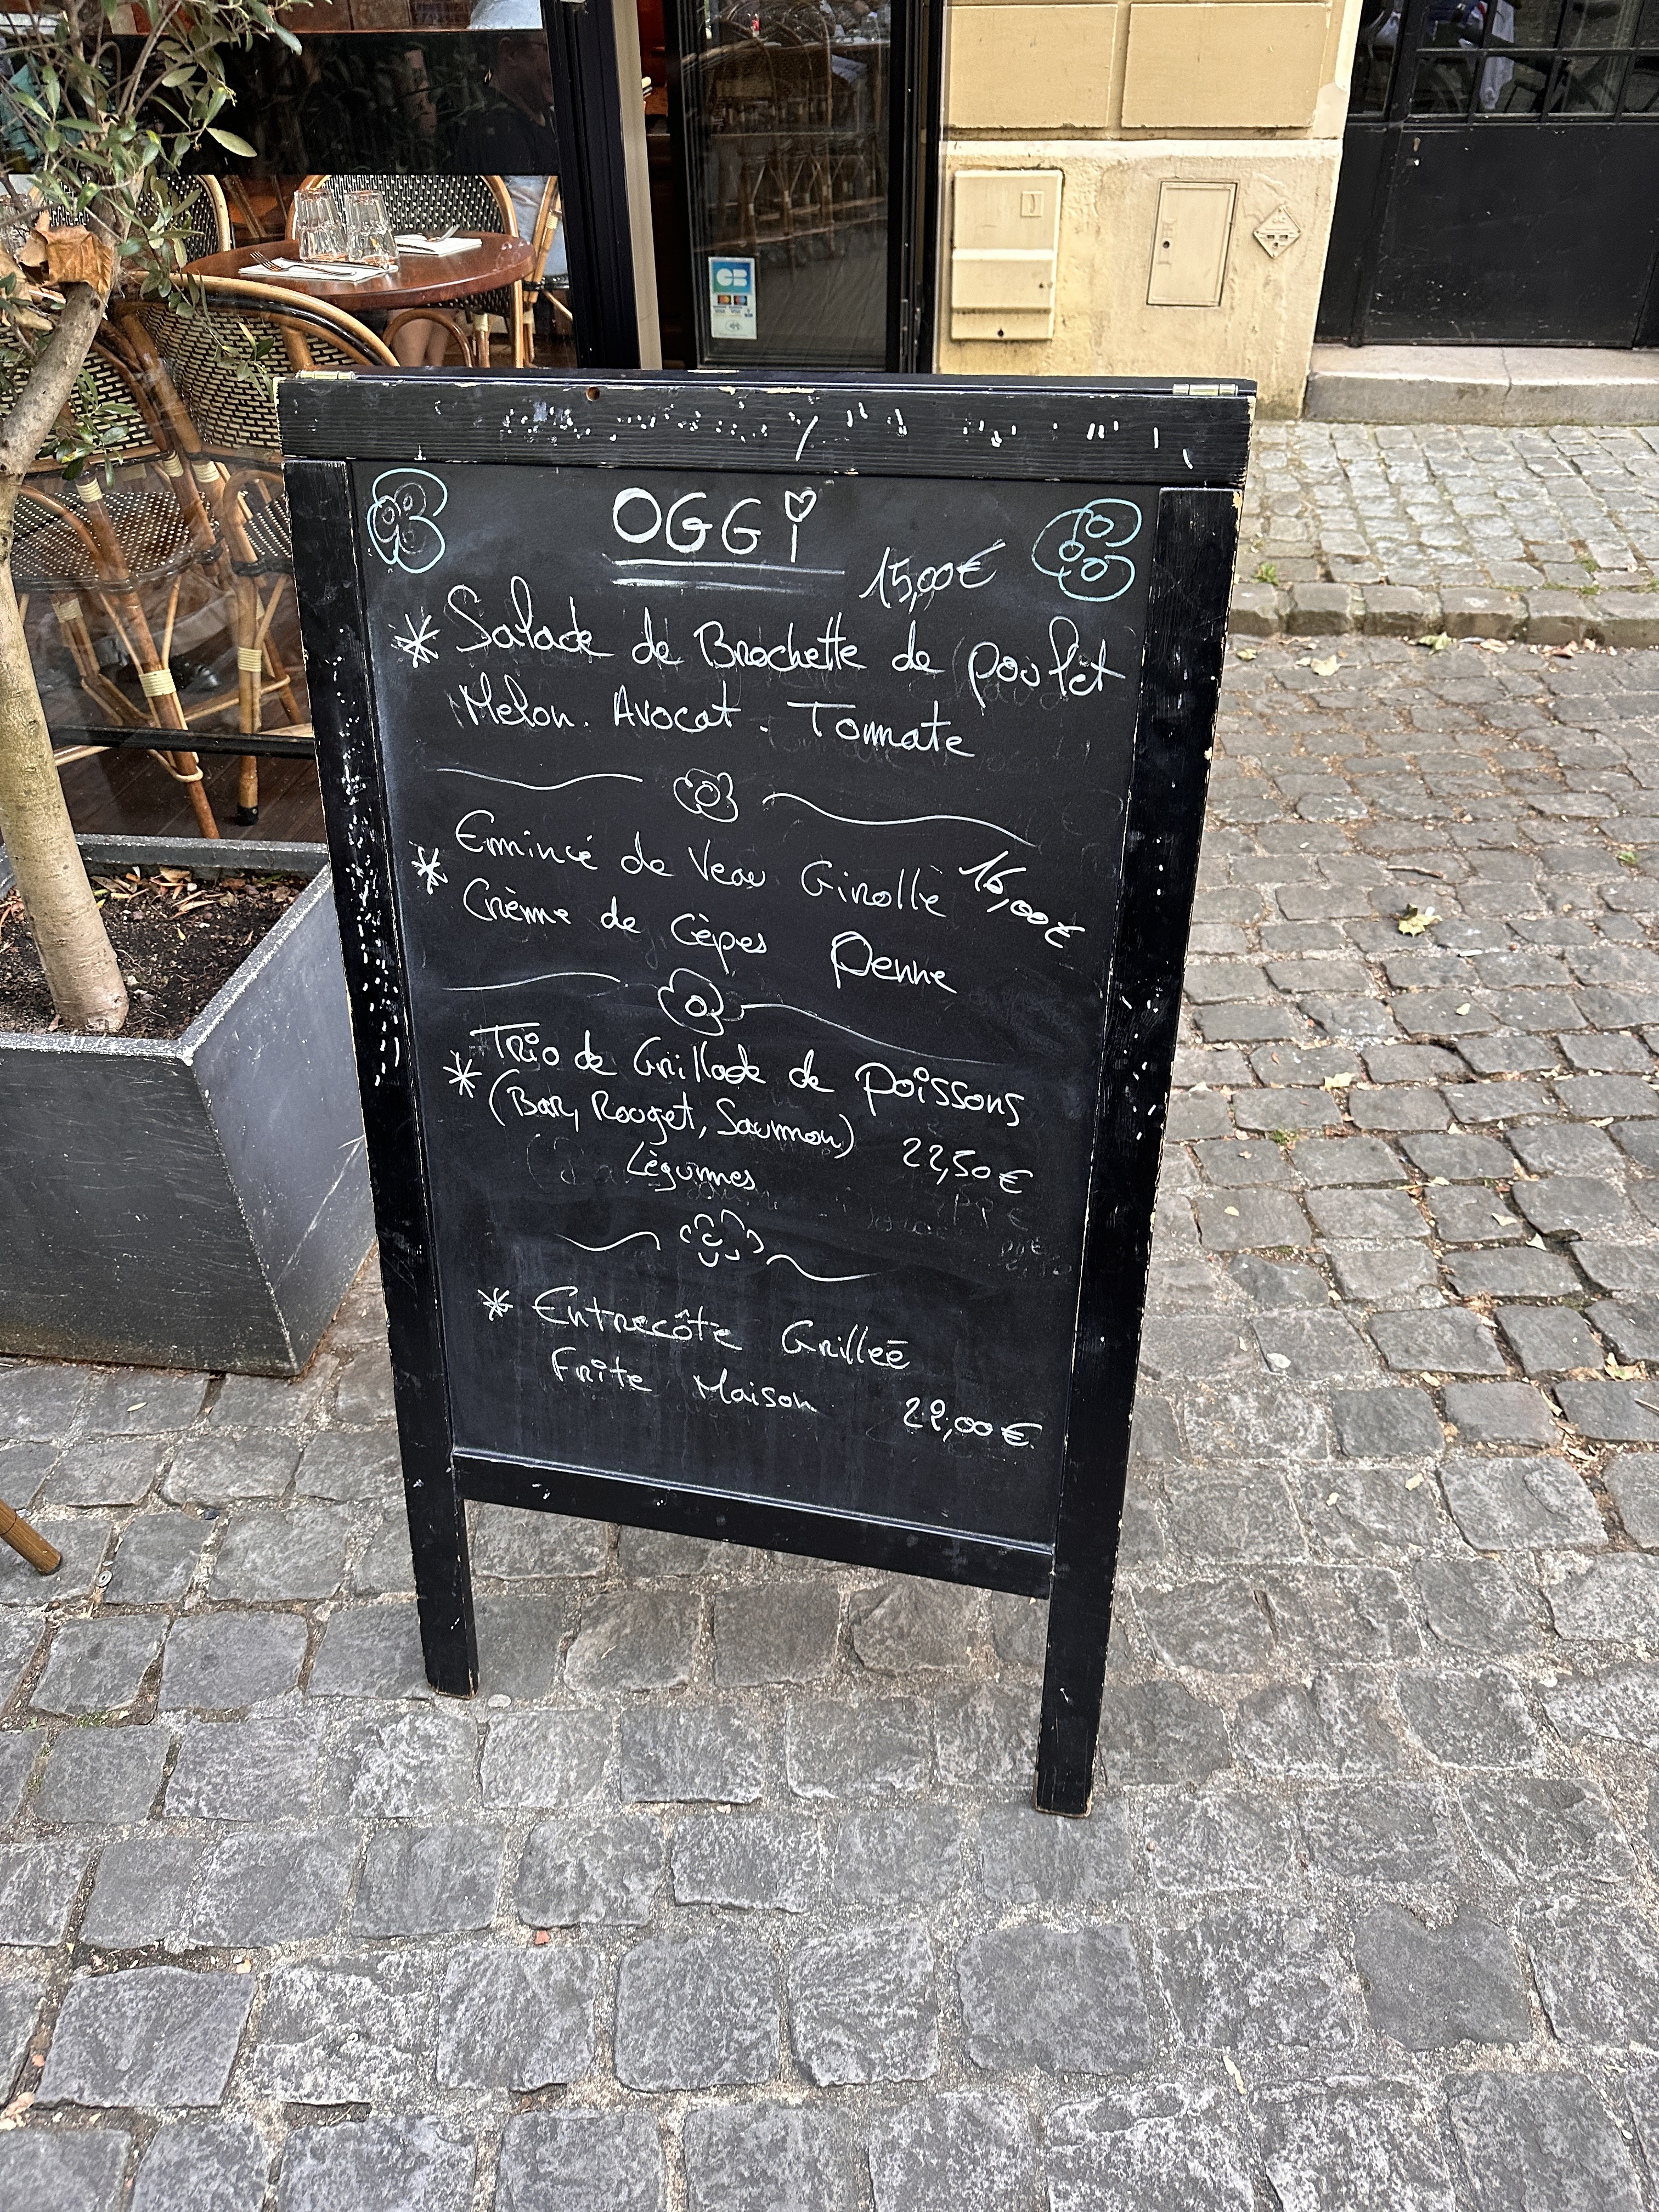 OGGi
15,00€
* Salade de Brochette de poulet
Melon. Avocat. Tomate
Emincé de Veau Girolle 16,00€
* Crème de Cèpes Penne
Trio de Grillade de poissons
* (Bar, Rouget, Saumon)
Légumes 22,50€
* Entrecôte Grilleé
Frite Maison 22,00€
CB